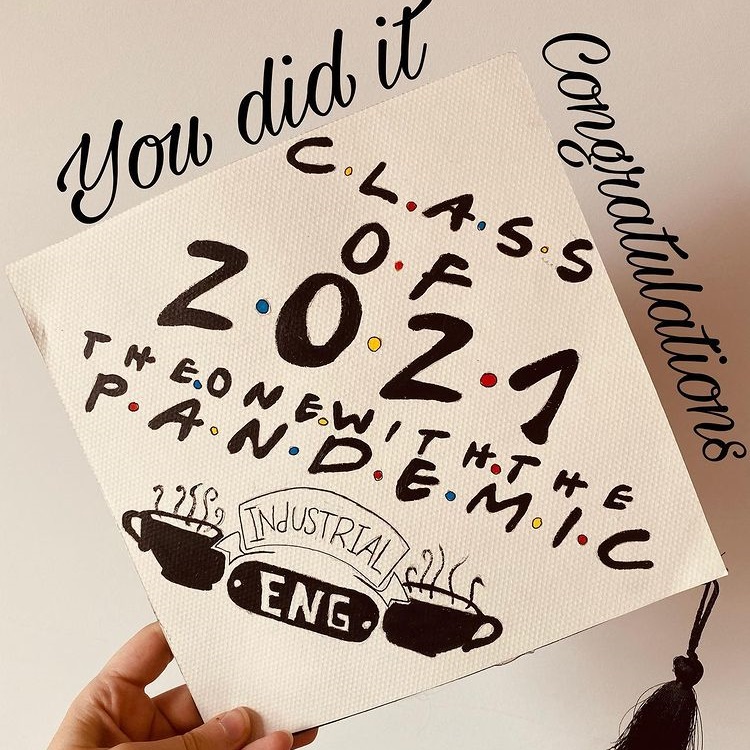 You did it
Congratulations
C•L•A•S•S
O•F
2•0•2•1
THE•ONE•WITH•THE
P•A•N•D•E•M•I•C
INdUSTRIAL
•ENG•